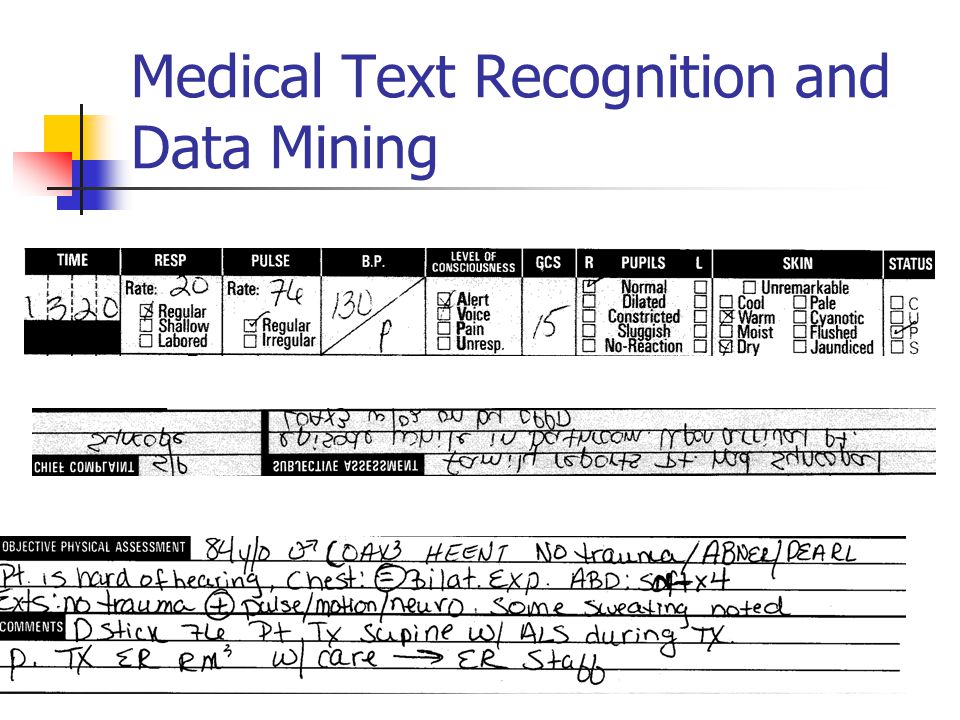 Medical Text Recognition and
Data Mining
TIME RESP PULSE B.P. LEVEL OF CONSCIOUSNESS GCS R PUPILS L SKIN STATUS
1320
Rate: 20
Regular
Shallow
Labored
Rate: 76
Regular
Irregular
130/P
Alert
Voice
Pain
Unresp.
15
Normal
Dilated
Constricted
Sluggish
No-Reaction
Unremarkable
Cool Pale
Warm Cyanotic
Moist Flushed
Dry Jaundiced
C
U
P
S
CHIEF COMPLAINT S/P
Syncope
SUBJECTIVE ASSESSMENT family reports pt. had syncopal
episode while in bathroom. Upon arrival pt.
COAX3
OBJECTIVE PHYSICAL ASSESSMENT 84 y/o ♂ COAX3 HEENT NO trauma/ABNEL/PEARL
Pt. is hard of hearing, Chest: = Bilat. Exp. ABD: soft x4
Exts: no trauma + pulse/motion/neuro. Some sweating noted
COMMENTS D stick 76 Pt Tx supine w/ ALS during TX.
p. TX ER RM3 w/ care → ER Staff